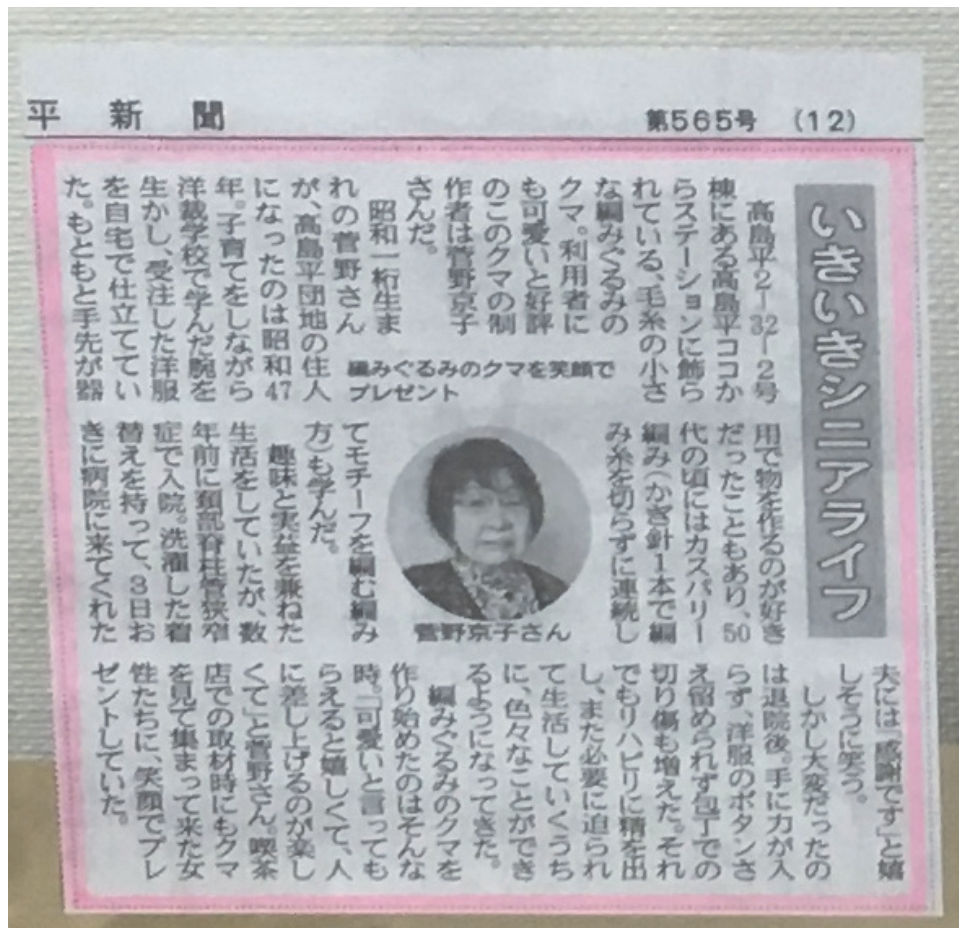 平 新 聞
第565号 (12)
いきいきシニアライフ
高島平2-32-2号
棟にある高島平ココか
らステーションに飾ら
れている、毛糸の小さ
な編みぐるみの
クマ。利用者に
も可愛いと好評
のこのクマの制
作者は菅野京子
さんだ。
昭和一桁生ま
れの菅野さん
が、高島平団地の住人
になったのは昭和47
年。子育てをしながら
洋裁学校で学んだ腕を
生かし、受注した洋服
を自宅で仕立ててい
た。もともと手先が器
編みぐるみのクマを笑顔で
プレゼント
用で物を作るのが好き
だったこともあり、50
代の頃にはカスパリー
編み(かぎ針1本で編
み糸を切らずに連続し
てモチーフを編む編み
方)も学んだ。
趣味と実益を兼ねた
生活をしていたが、数
年前に頚部脊柱管狭窄
症で入院。洗濯した着
替えを持って、3日お
きに病院に来てくれた
菅野京子さん
夫には「感謝です」と嬉
しそうに笑う。
しかし大変だったの
は退院後。手に力が入
らず、洋服のボタンさ
え留められず包丁での
切り傷も増えた。それ
でもリハビリに精を出
し、また必要に迫られ
て生活していくうち
に、色々なことができ
るようになってきた。
編みぐるみのクマを
作り始めたのはそんな
時。「可愛いと言っても
らえると嬉しくて、人
に差し上げるのが楽し
くて」と菅野さん。喫茶
店での取材時にもクマ
を見て集まって来た女
性たちに、笑顔でプレ
ゼントしていた。